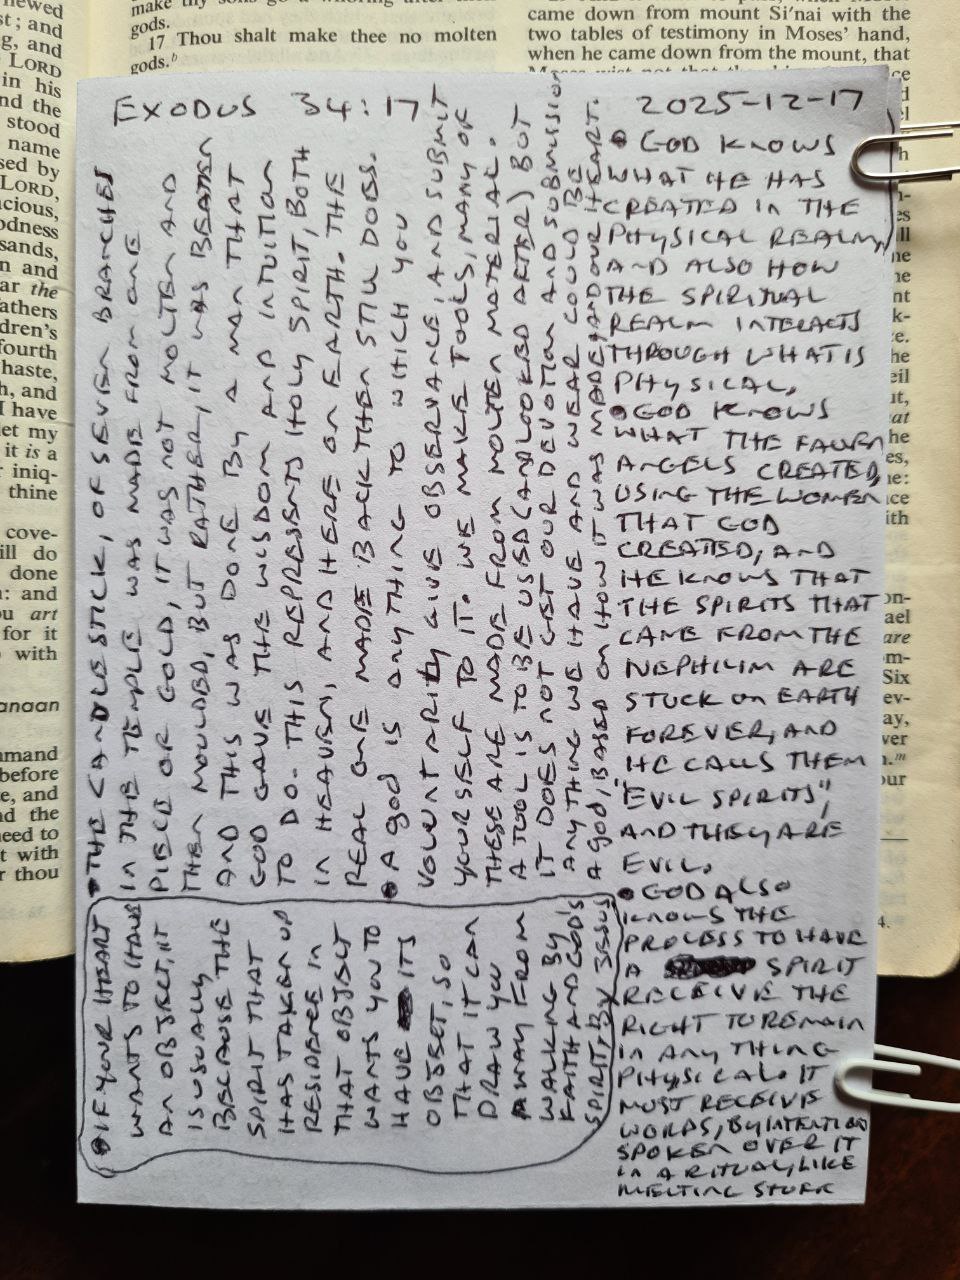 make thy sons go a whoring after their
gods.
17 Thou shalt make thee no molten
gods.ᵇ
came down from mount Si'nai with the
two tables of testimony in Moses' hand,
when he came down from the mount, that
EXODUS 34:17
2025-12-17
• GOD KNOWS
WHAT HE HAS
CREATED IN THE
PHYSICAL REALM,
AND ALSO HOW
THE SPIRITUAL
REALM INTERACTS
THROUGH WHAT IS
PHYSICAL.
• GOD KNOWS
WHAT THE FALLEN
ANGELS CREATED,
USING THE WOMEN
THAT GOD
CREATED, AND
HE KNOWS THAT
THE SPIRITS THAT
CAME FROM THE
NEPHILIM ARE
STUCK ON EARTH
FOREVER, AND
HE CALLS THEM
"EVIL SPIRITS",
AND THEY ARE
EVIL.
• GOD ALSO
KNOWS THE
PROCESS TO HAVE
A SPIRIT
RECEIVE THE
RIGHT TO REMAIN
IN ANY THING
PHYSICAL. IT
MUST RECEIVE
WORDS, BY INTENTION
SPOKEN OVER IT
IN A RITUAL, LIKE
MELTING STUFF
• THE CANDLESTICK, OF SEVEN BRANCHES
IN THE TEMPLE WAS MADE FROM ONE
PIECE OF GOLD, IT WAS NOT MOLTEN AND
THEN MOULDED, BUT RATHER, IT WAS BEATEN
AND THIS WAS DONE BY A MAN THAT
GOD GAVE THE WISDOM AND INTUITION
TO DO. THIS REPRESENTS HOLY SPIRIT, BOTH
IN HEAVEN, AND HERE ON EARTH. THE
REAL ONE MADE BACK THEN STILL DOES.
• A god IS ANYTHING TO WHICH YOU
VOLUNTARILY GIVE OBSERVANCE, AND SUBMIT
YOURSELF TO IT. WE MAKE TOOLS, MANY OF
THESE ARE MADE FROM MOLTEN MATERIAL.
A TOOL IS TO BE USED (AND LOOKED AFTER) BUT
IT DOES NOT GET OUR DEVOTION AND SUBMISSION
ANYTHING WE HAVE AND WEAR COULD BE
A god, BASED ON HOW IT WAS MADE, AND OUR HEART.
• IF YOUR HEART
WANTS TO HAVE
AN OBJECT, IT
IS USUALLY
BECAUSE THE
SPIRIT THAT
HAS TAKEN UP
RESIDENCE IN
THAT OBJECT
WANTS YOU TO
HAVE ITS
OBJECT, SO
THAT IT CAN
DRAW YOU
AWAY FROM
WALKING BY
FAITH AND GOD'S
SPIRIT, BY JESUS